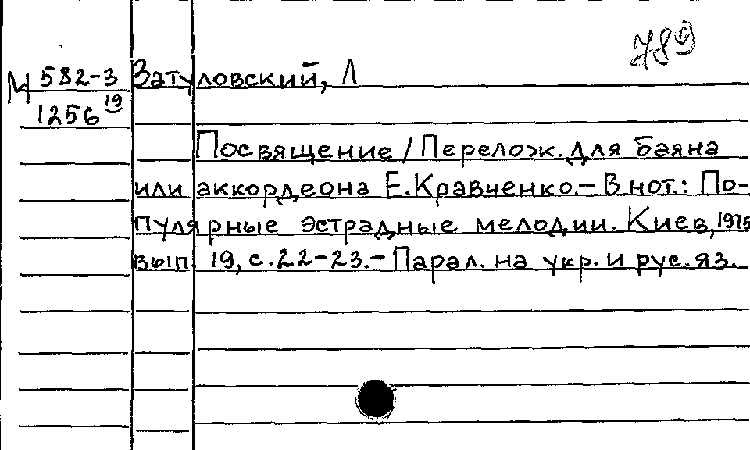 789
М 582-3 Затуловский, Л
1256 19
Посвящение / Перелож. для баяна
или аккордеона Е. Кравченко. – В нот.: По-
пулярные эстрадные мелодии. Киев, 1975
вып 19, с. 22-23. – Парал. на укр. и рус. яз.